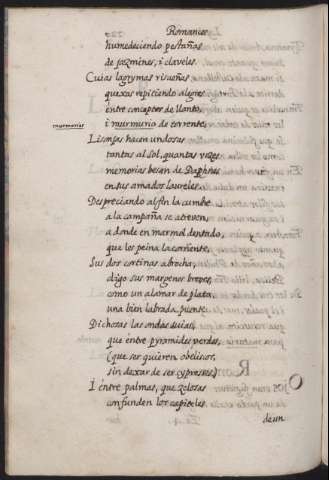 Romances
humedeciendo pestañas
de jazmines, i claveles.
Cuias lagrymas risueñas
quexas repitiendo alegres
entre concentos de llanto,
murmurios
i murmurio de torrente,
Lisonjas hacen undosas
tantas al Sol, quantas vezes
memorias besan de Daphnes
en sus amados laureles.
Despreciando al fin la cumbre
a la campaña se atreven,
a donde en marmol dentado
que los peina la corriente,
sus dos cortinas abrocha,
digo sus margenes breves,
como un alamar de plata
una bien labrada puente:
Dichosas las ondas suias,
que entre pyramides verdes,
(que ser quieren obeliscos,
sin dexar de ser cypreses)
I entre palmas, que zelosas
confunden los capiteles
de un